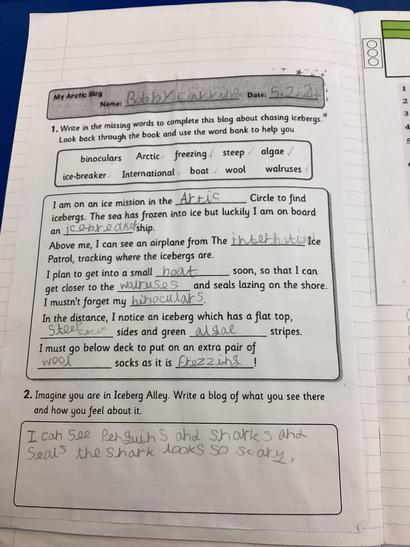 My Arctic Blog
Name: Bobby Date: 5.2.21
1. Write in the missing words to complete this blog about chasing icebergs.
Look back through the book and use the word bank to help you
binoculars Arctic freezing steep algae
ice-breaker International boat wool walruses
I am on an ice mission in the Artic Circle to find
icebergs. The sea has frozen into ice but luckily I am on board
an ship.
Above me, I can see an airplane from The Ice
Patrol, tracking where the icebergs are.
I plan to get into a small boat soon, so that I can
get closer to the walruses and seals lazing on the shore.
I mustn't forget my binoculars.
In the distance, I notice an iceberg which has a flat top,
sides and green algae stripes.
I must go below deck to put on an extra pair of
wool socks as it is frezzing !
2. Imagine you are in Iceberg Alley. Write a blog of what you see there
and how you feel about it.
I can see Penguins and sharks and
seals the shark looks so scary.
1
2
3
4
5